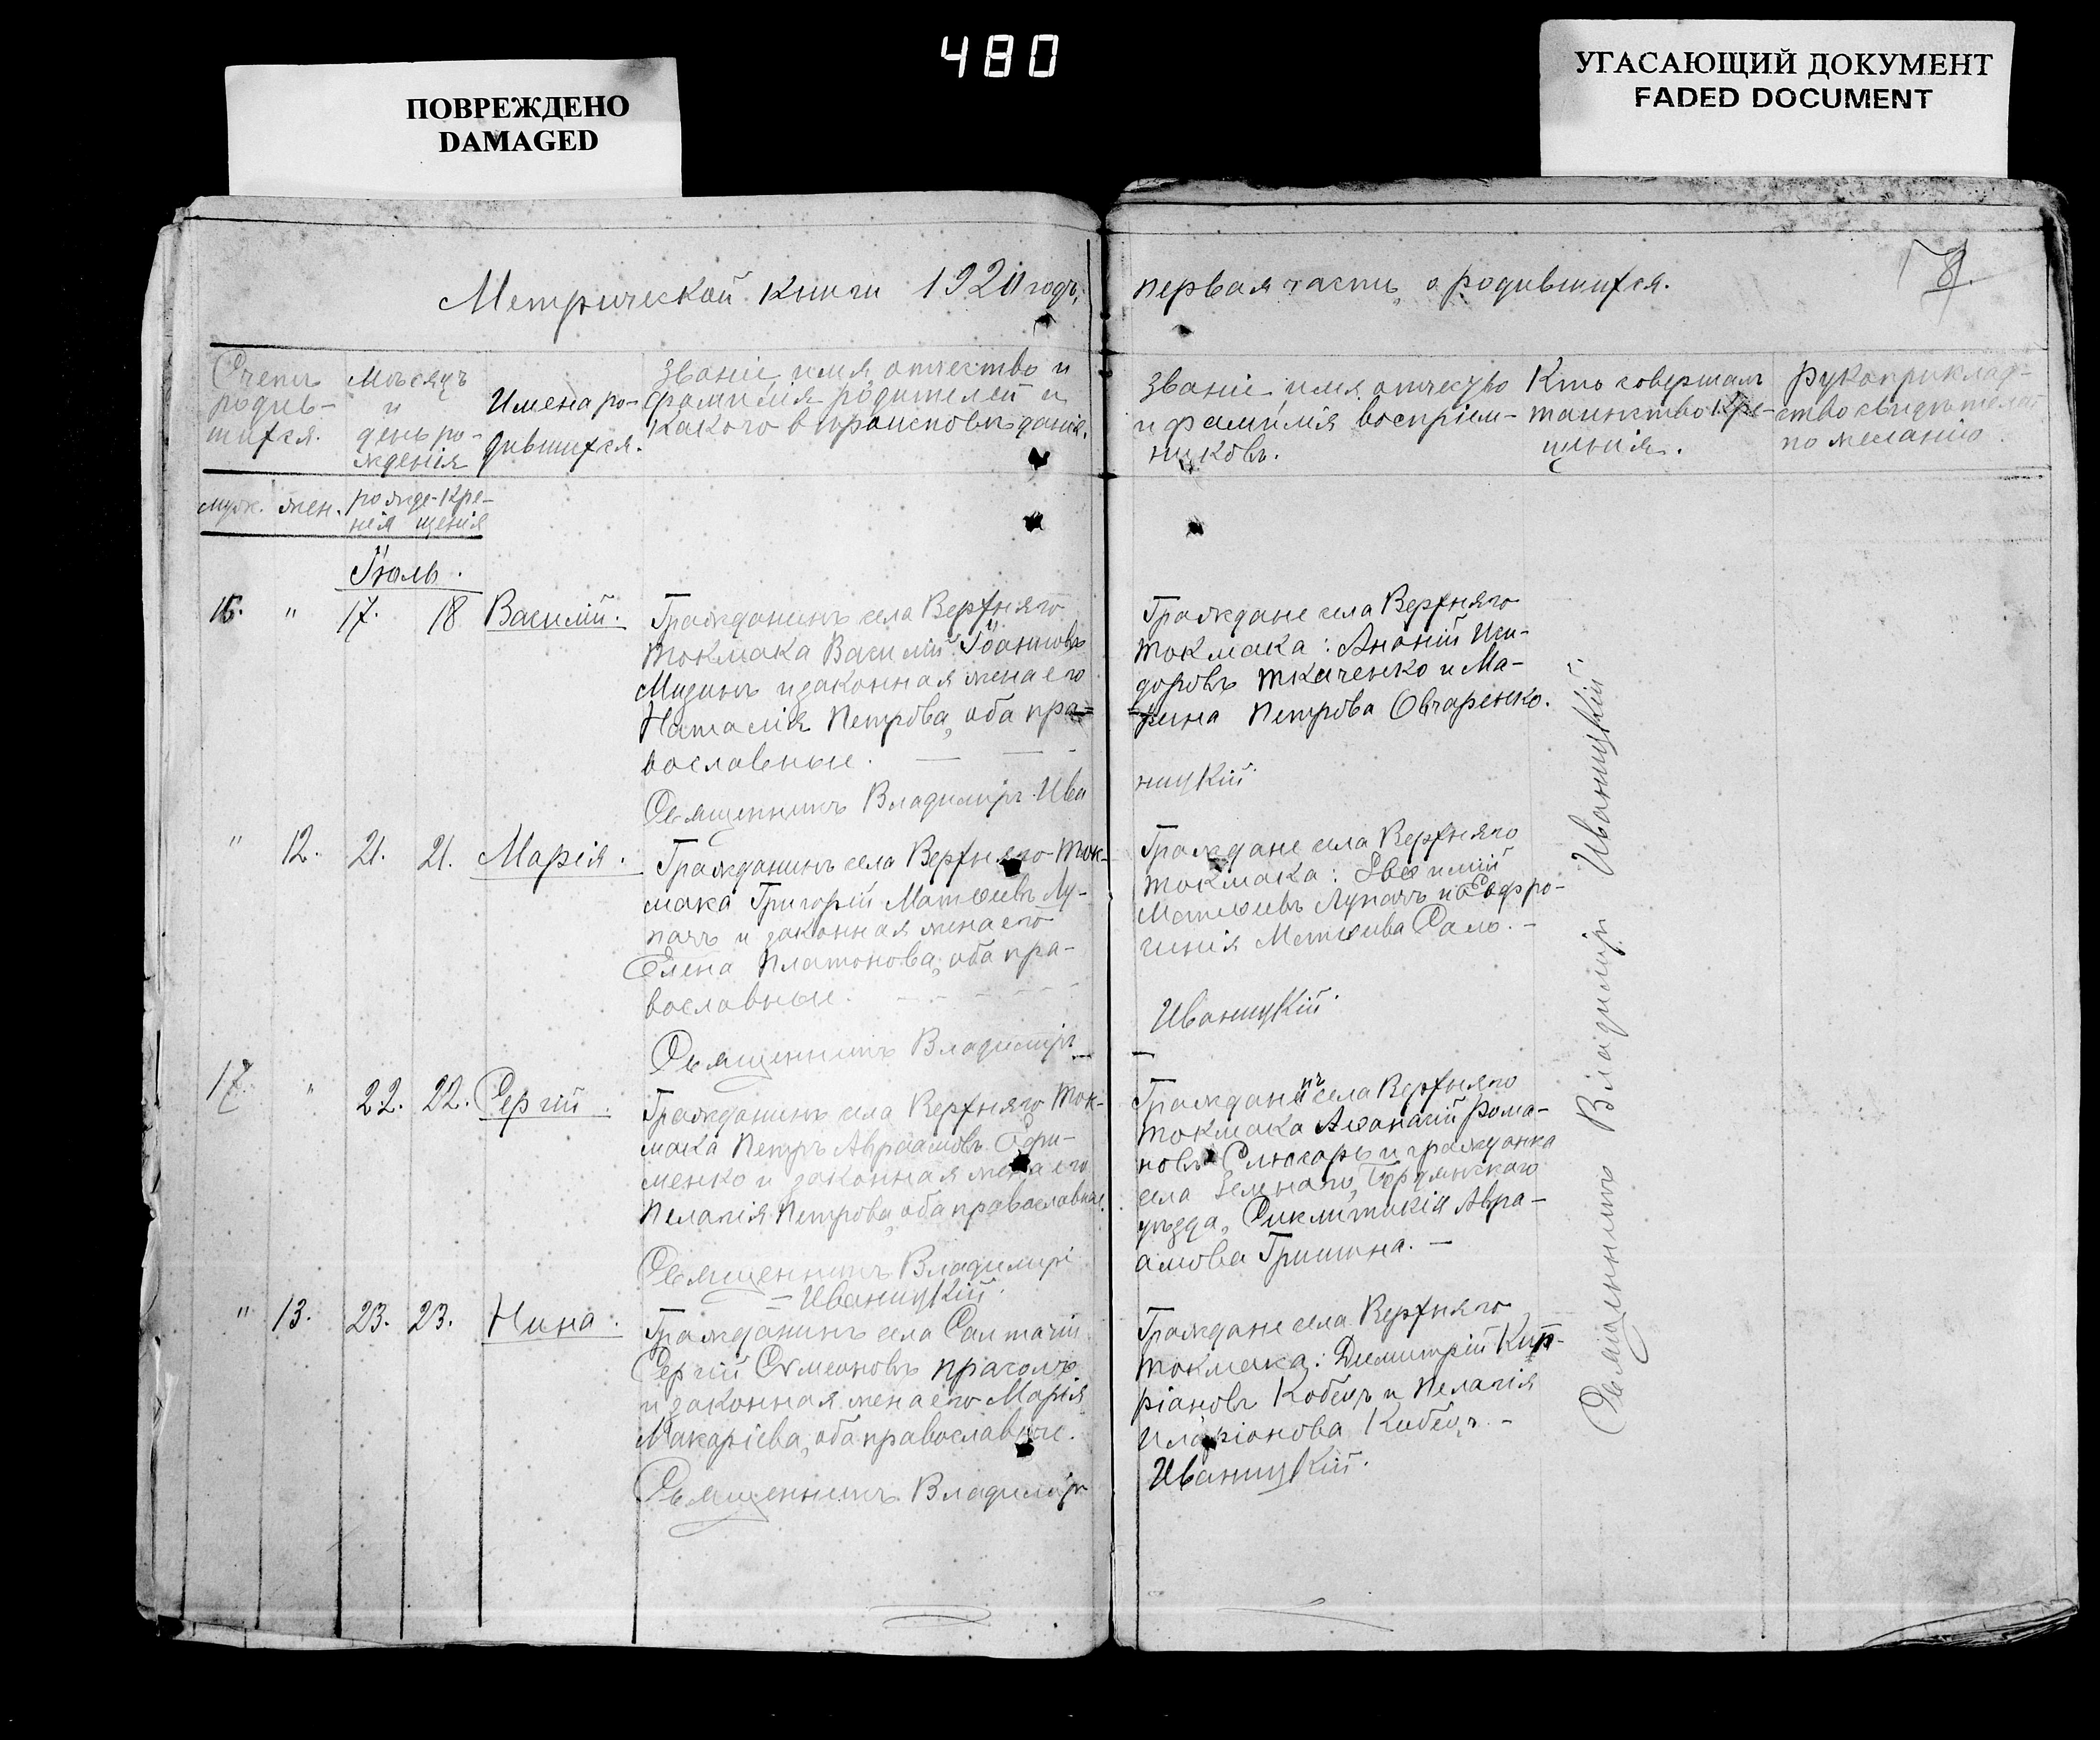 480
ПОВРЕЖДЕНО
DAMAGED
УГАСАЮЩИЙ ДОКУМЕНТ
FADED DOCUMENT
Метрической книги 1920 годъ,
первая часть, о родившихся.
8.
Счетъ родив-шихся.
Мѣсяцъ и день ро-жденія
Имена ро-дившихся.
Званіе, имя, отчество и
фамилія родителей и
какого вѣроисповѣданія.
Званіе, имя, отчество
и фамилія воспріем-
никовъ.
Кто совершалъ
таинство кре-
щенія.
Рукоприклад-
ство свидѣтелей
по желанію.
муж. жен. рожде-нія кре-щенія
Іюль.
16. " 17. 18 Василій.
Гражданинъ села Верхняго
Токмака Василій Іоанновъ
Мизинъ и законная жена его
Наталія Петрова, оба пра=
вославные.
Священникъ Владиміръ Ива
Граждане села Верхняго
Токмака: Ананій Иси-
доровъ Ткаченко и Ма-
=рина Петрова Овчаренко.
ницкій.
" 12. 21. 21. Марія.
Гражданинъ села Верхняго Ток-
мака Григорій Матѳеевъ Лу-
пачъ и законная жена его
Елена Платонова, оба пра-
вославные.
Священникъ Владиміръ
Граждане села Верхняго
Токмака:
Матѳеевъ Лупачъ и Евфро-
синія Матѳеева Сало. -
Иваницкій.
17. " 22. 22. Сергій.
Гражданинъ села Верхняго Ток-
мака Петръ Авраамовъ Ефи-
менко и законная жена его
Пелагія Петрова, оба православные.
Священникъ Владиміръ
= Иваницкій.
Гражданинъ села Верхняго
Токмака Аѳанасій Рома-
новъ Слюсарь и гражданка
села Зеленаго, Бердянскаго
уѣзда, Синклитикія Авра-
амова Гришина. -
" 13. 23. 23. Нина.
Гражданинъ села Салтычіи
Сергій Симеоновъ Праголъ
и законная жена его Марія
Макаріева, оба православные.
Священникъ Владиміръ
Граждане села Верхняго
Токмака: Димитрій Кип-
ріановъ Кобецъ и Пелагія
Иларіонова Кобецъ. -
Иваницкій.
Священникъ Владиміръ Иваницкій.